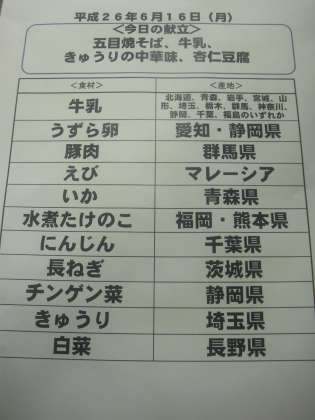 平成26年6月16日（月）
＜今日の献立＞
五目焼そば、牛乳、
きゅうりの中華味、杏仁豆腐
＜食材＞ ＜産地＞
牛乳 北海道、青森、岩手、宮城、山
形、埼玉、栃木、群馬、神奈川、
静岡、千葉、福島のいずれか
うずら卵 愛知・静岡県
豚肉 群馬県
えび マレーシア
いか 青森県
水煮たけのこ 福岡・熊本県
にんじん 千葉県
長ねぎ 茨城県
チンゲン菜 静岡県
きゅうり 埼玉県
白菜 長野県